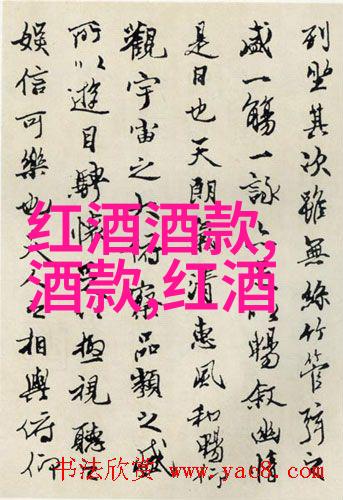 列坐其次雖無絲竹管弦之
盛一觴一詠以暢敘幽情
是日也天朗氣清惠風和暢仰
觀宇宙之大俯察品類之盛
所以遊目騁懷以極視聽之
娛信可樂也夫人之相與俯仰
红酒酒款,
酒款,红酒
书法欣赏 www.yac8.com